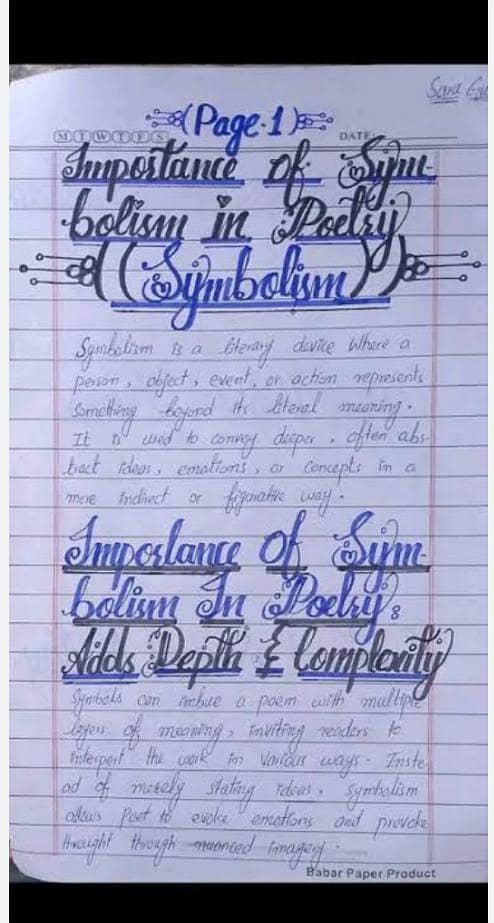 Sara
(Page-1)
M T W T F S
DATE:
Importance of Sym-
bolism in Poetry
((Symbolism))
Symbolism is a literary device where a
person, object, event, or action represents
Something beyond its literal meaning.
It is used to convey deeper, often abs-
tract ideas, emotions, or concepts in a
more indirect or figurative way.
Importance Of Sym-
bolism In Poetry:
Adds Depth & Complexity
Symbols can imbue a poem with multiple
layers of meaning, inviting readers to
interpert the work in various ways. Inste
ad of merely stating ideas, symbolism
allows Poet to evoke emotions and provoke
thought through nuanced imagery.
Babar Paper Product